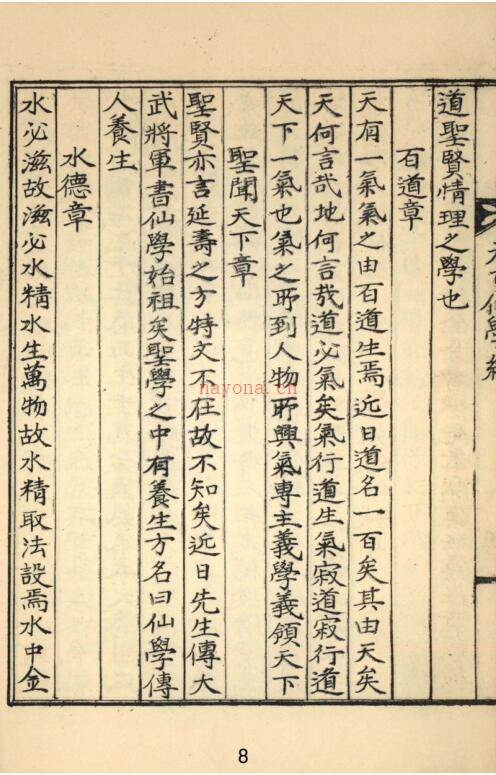 道聖賢情理之學也
石道章
天有一氣氣之由石道生焉近日道名一百矣其由天矣
天何言哉地何言哉道必氣矣氣行道生氣寂道寂行道
天下一氣也氣之所到人物所興氣專主義學義領天下
聖聞天下章
聖賢亦言延壽之方特文不在故不知矣近日先生傳大
武將軍書仙學始祖矣聖學之中有養生方名曰仙學傳
人養生
水德章
水必滋故滋必水精水生萬物故水精取法設焉水中金
nayona.cn
8